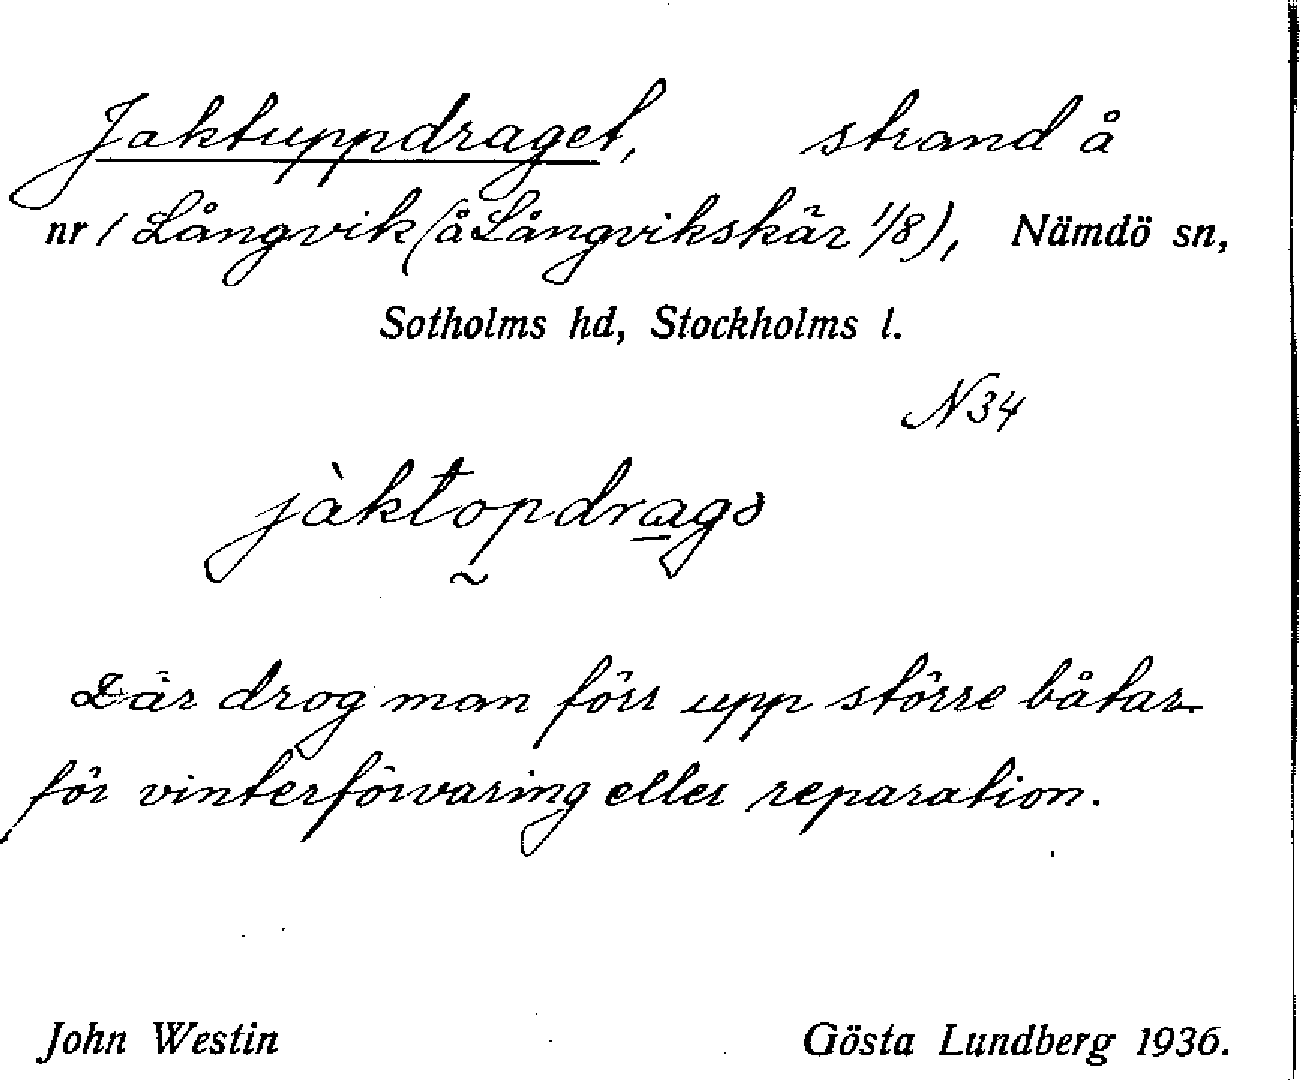 Jaktuppdraget, strand å
nr 1 Långvik (å Långvikskär 1/8), Nämdö sn,
Sotholms hd, Stockholms l.
N34
jàktopdragə
Där drog man förr upp större båtar
för vinterförvaring eller reparation.
John Westin Gösta Lundberg 1936.